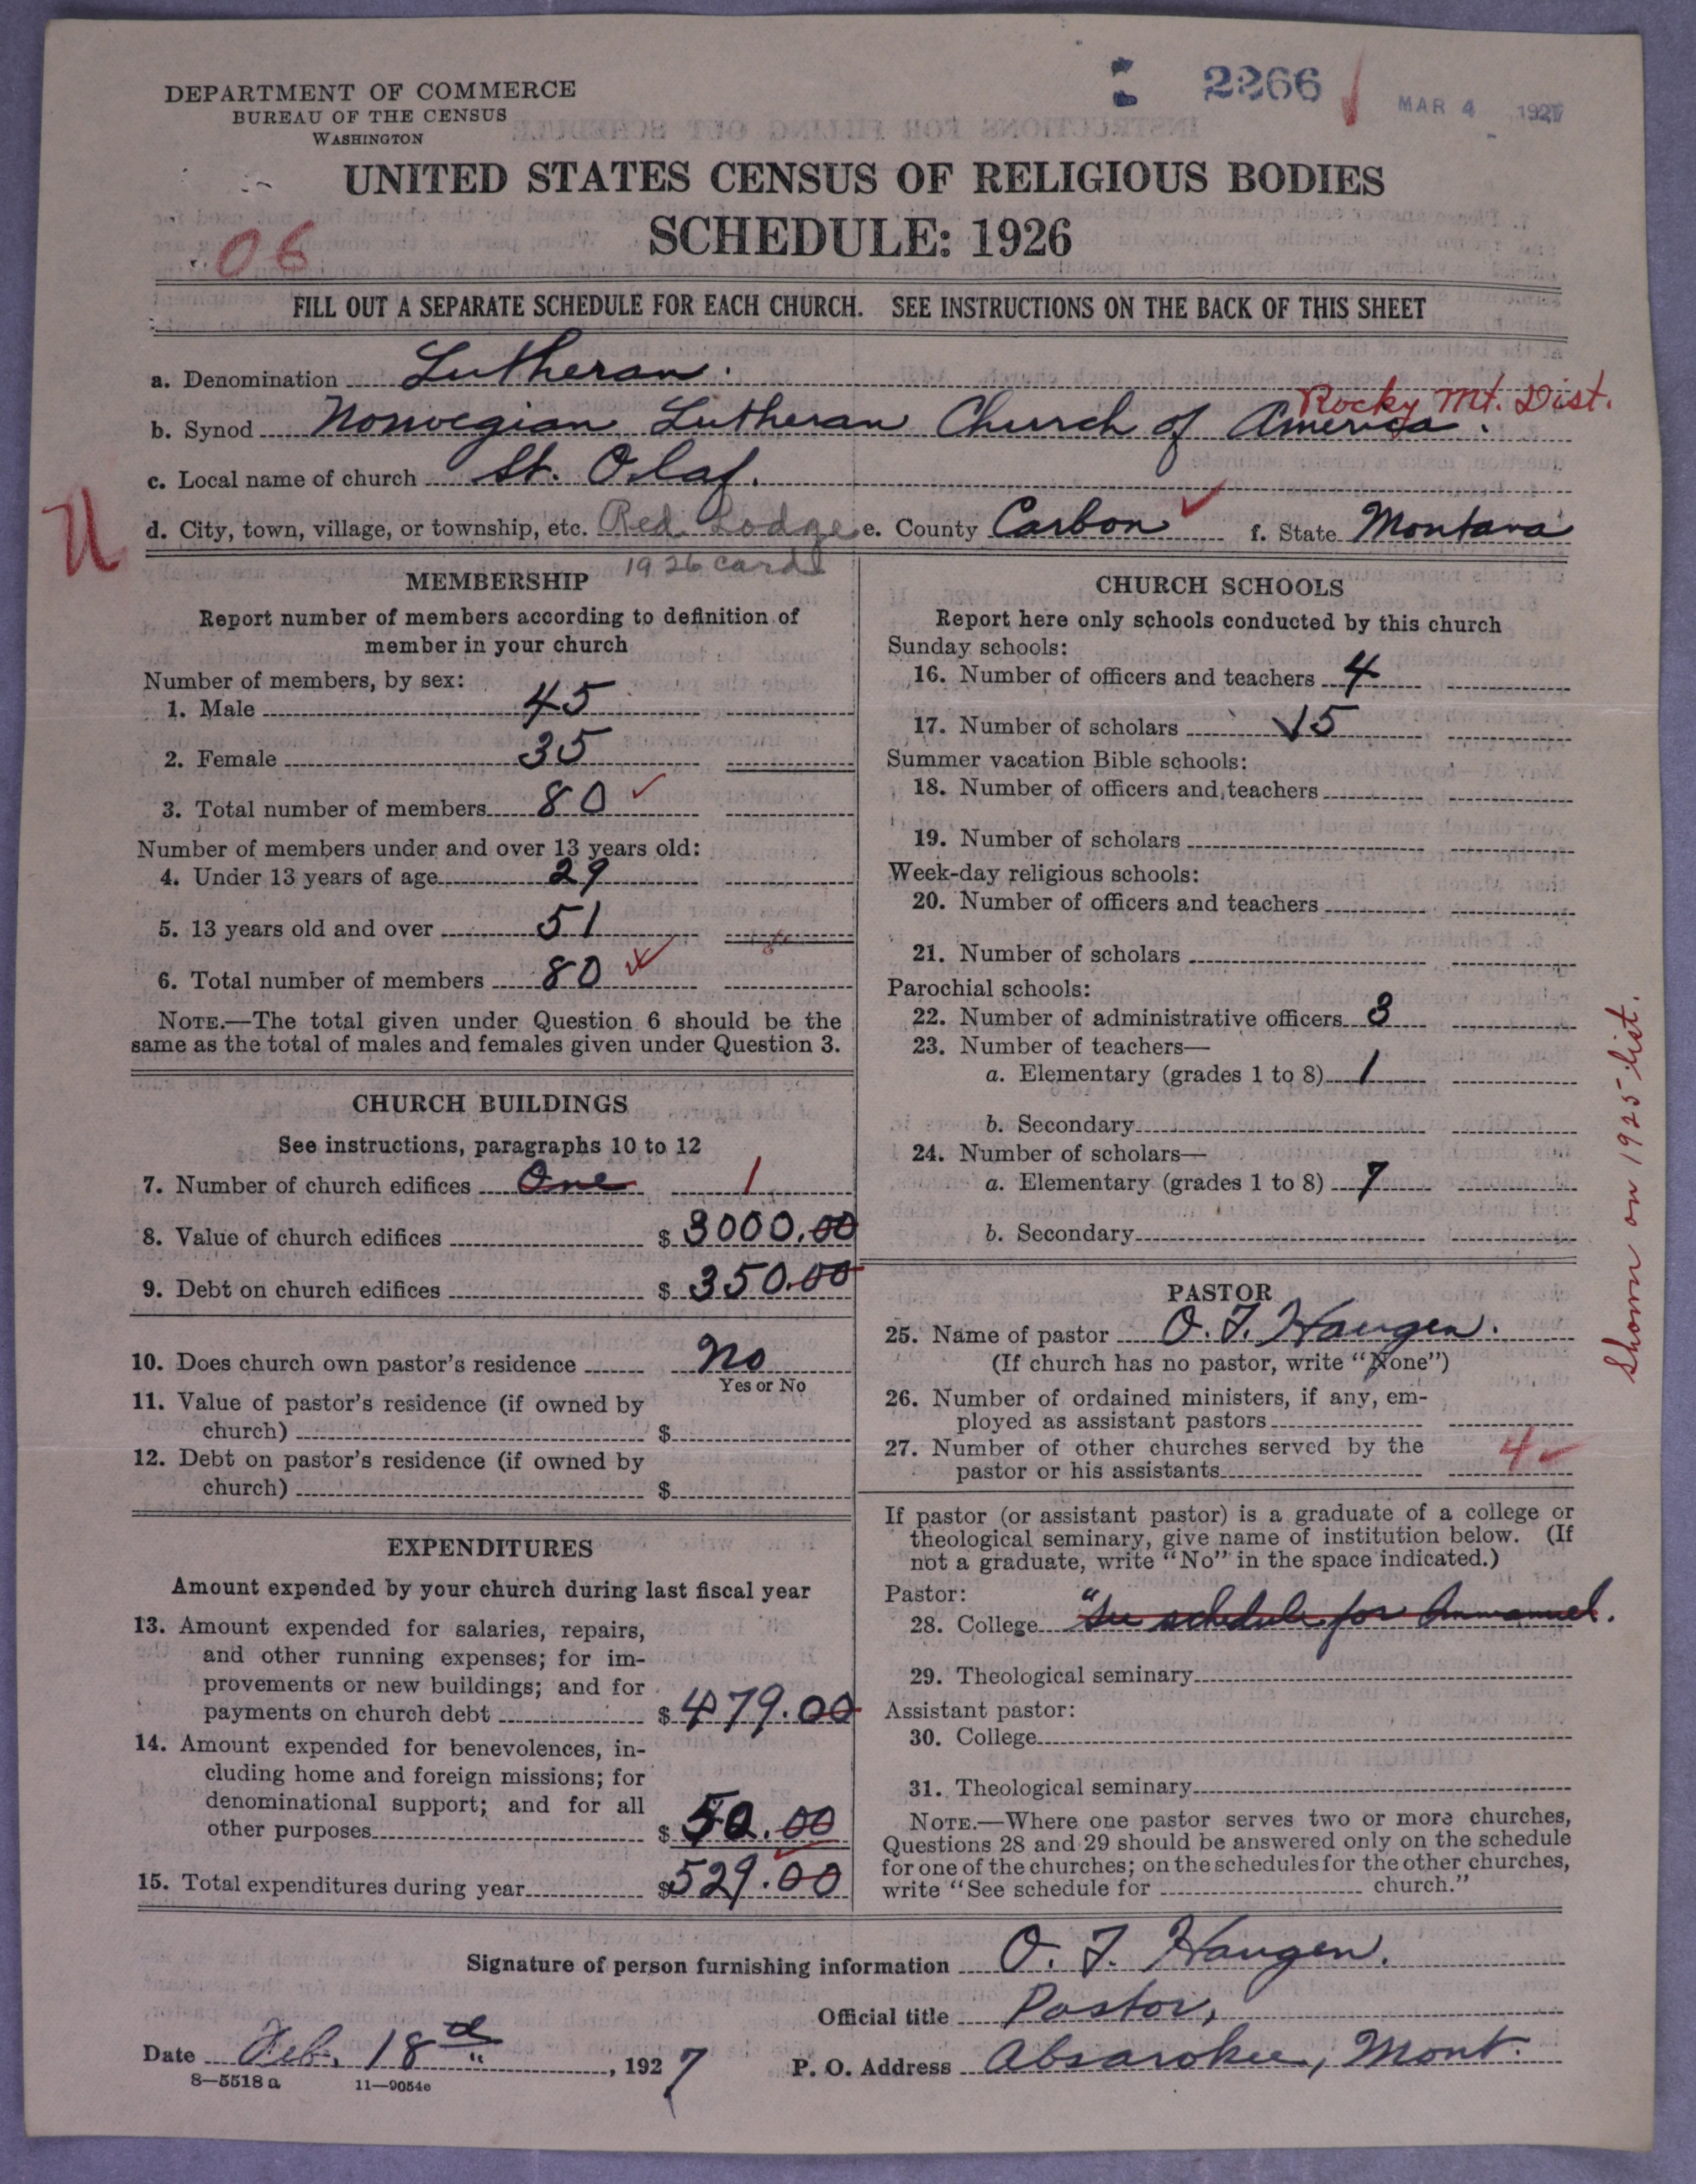 2266
MAR 4 1927
DEPARTMENT OF COMMERCE
BUREAU OF THE CENSUS
WASHINGTON
UNITED STATES CENSUS OF RELIGIOUS BODIES
SCHEDULE: 1926
06
FILL OUT A SEPARATE SCHEDULE FOR EACH CHURCH. SEE INSTRUCTIONS ON THE BACK OF THIS SHEET
a. Denomination Lutheran.
Rocky Mt. Dist.
b. Synod Norwegian Lutheran Church of America.
c. Local name of church St. Olaf.
U
d. City, town, village, or township, etc. Red Lodge e. County Carbon f. State Montana
1926 card
MEMBERSHIP
Report number of members according to definition of
member in your church
Number of members, by sex:
1. Male 45
2. Female 35
3. Total number of members 80
Number of members under and over 13 years old:
4. Under 13 years of age 29
5. 13 years old and over 51
6. Total number of members 80
NOTE.—The total given under Question 6 should be the
same as the total of males and females given under Question 3.
CHURCH BUILDINGS
See instructions, paragraphs 10 to 12
7. Number of church edifices One 1
8. Value of church edifices $ 3000.00
9. Debt on church edifices $ 350.00
10. Does church own pastor's residence No
Yes or No
11. Value of pastor's residence (if owned by
church) $
12. Debt on pastor's residence (if owned by
church) $
EXPENDITURES
Amount expended by your church during last fiscal year
13. Amount expended for salaries, repairs,
and other running expenses; for im-
provements or new buildings; and for
payments on church debt $ 479.00
14. Amount expended for benevolences, in-
cluding home and foreign missions; for
denominational support; and for all
other purposes $ 50.00
15. Total expenditures during year $ 529.00
CHURCH SCHOOLS
Report here only schools conducted by this church
Sunday schools:
16. Number of officers and teachers 4
17. Number of scholars 15
Summer vacation Bible schools:
18. Number of officers and teachers
19. Number of scholars
Week-day religious schools:
20. Number of officers and teachers
21. Number of scholars
Parochial schools:
22. Number of administrative officers 3
23. Number of teachers—
a. Elementary (grades 1 to 8) 1
b. Secondary
24. Number of scholars—
a. Elementary (grades 1 to 8) 7
b. Secondary
PASTOR
25. Name of pastor O. T. Haugen.
(If church has no pastor, write "None")
26. Number of ordained ministers, if any, em-
ployed as assistant pastors
27. Number of other churches served by the
pastor or his assistants 4
If pastor (or assistant pastor) is a graduate of a college or
theological seminary, give name of institution below. (If
not a graduate, write "No" in the space indicated.)
Pastor:
28. College "See schedule for Immanuel.
29. Theological seminary
Assistant pastor:
30. College
31. Theological seminary
NOTE.—Where one pastor serves two or more churches,
Questions 28 and 29 should be answered only on the schedule
for one of the churches; on the schedules for the other churches,
write "See schedule for church."
Shown on 1925 list.
Signature of person furnishing information O. T. Haugen.
Official title Pastor,
Date Feb. 18th, 1927 P. O. Address Absarokee, Mont.
8—5518 a 11—9054c